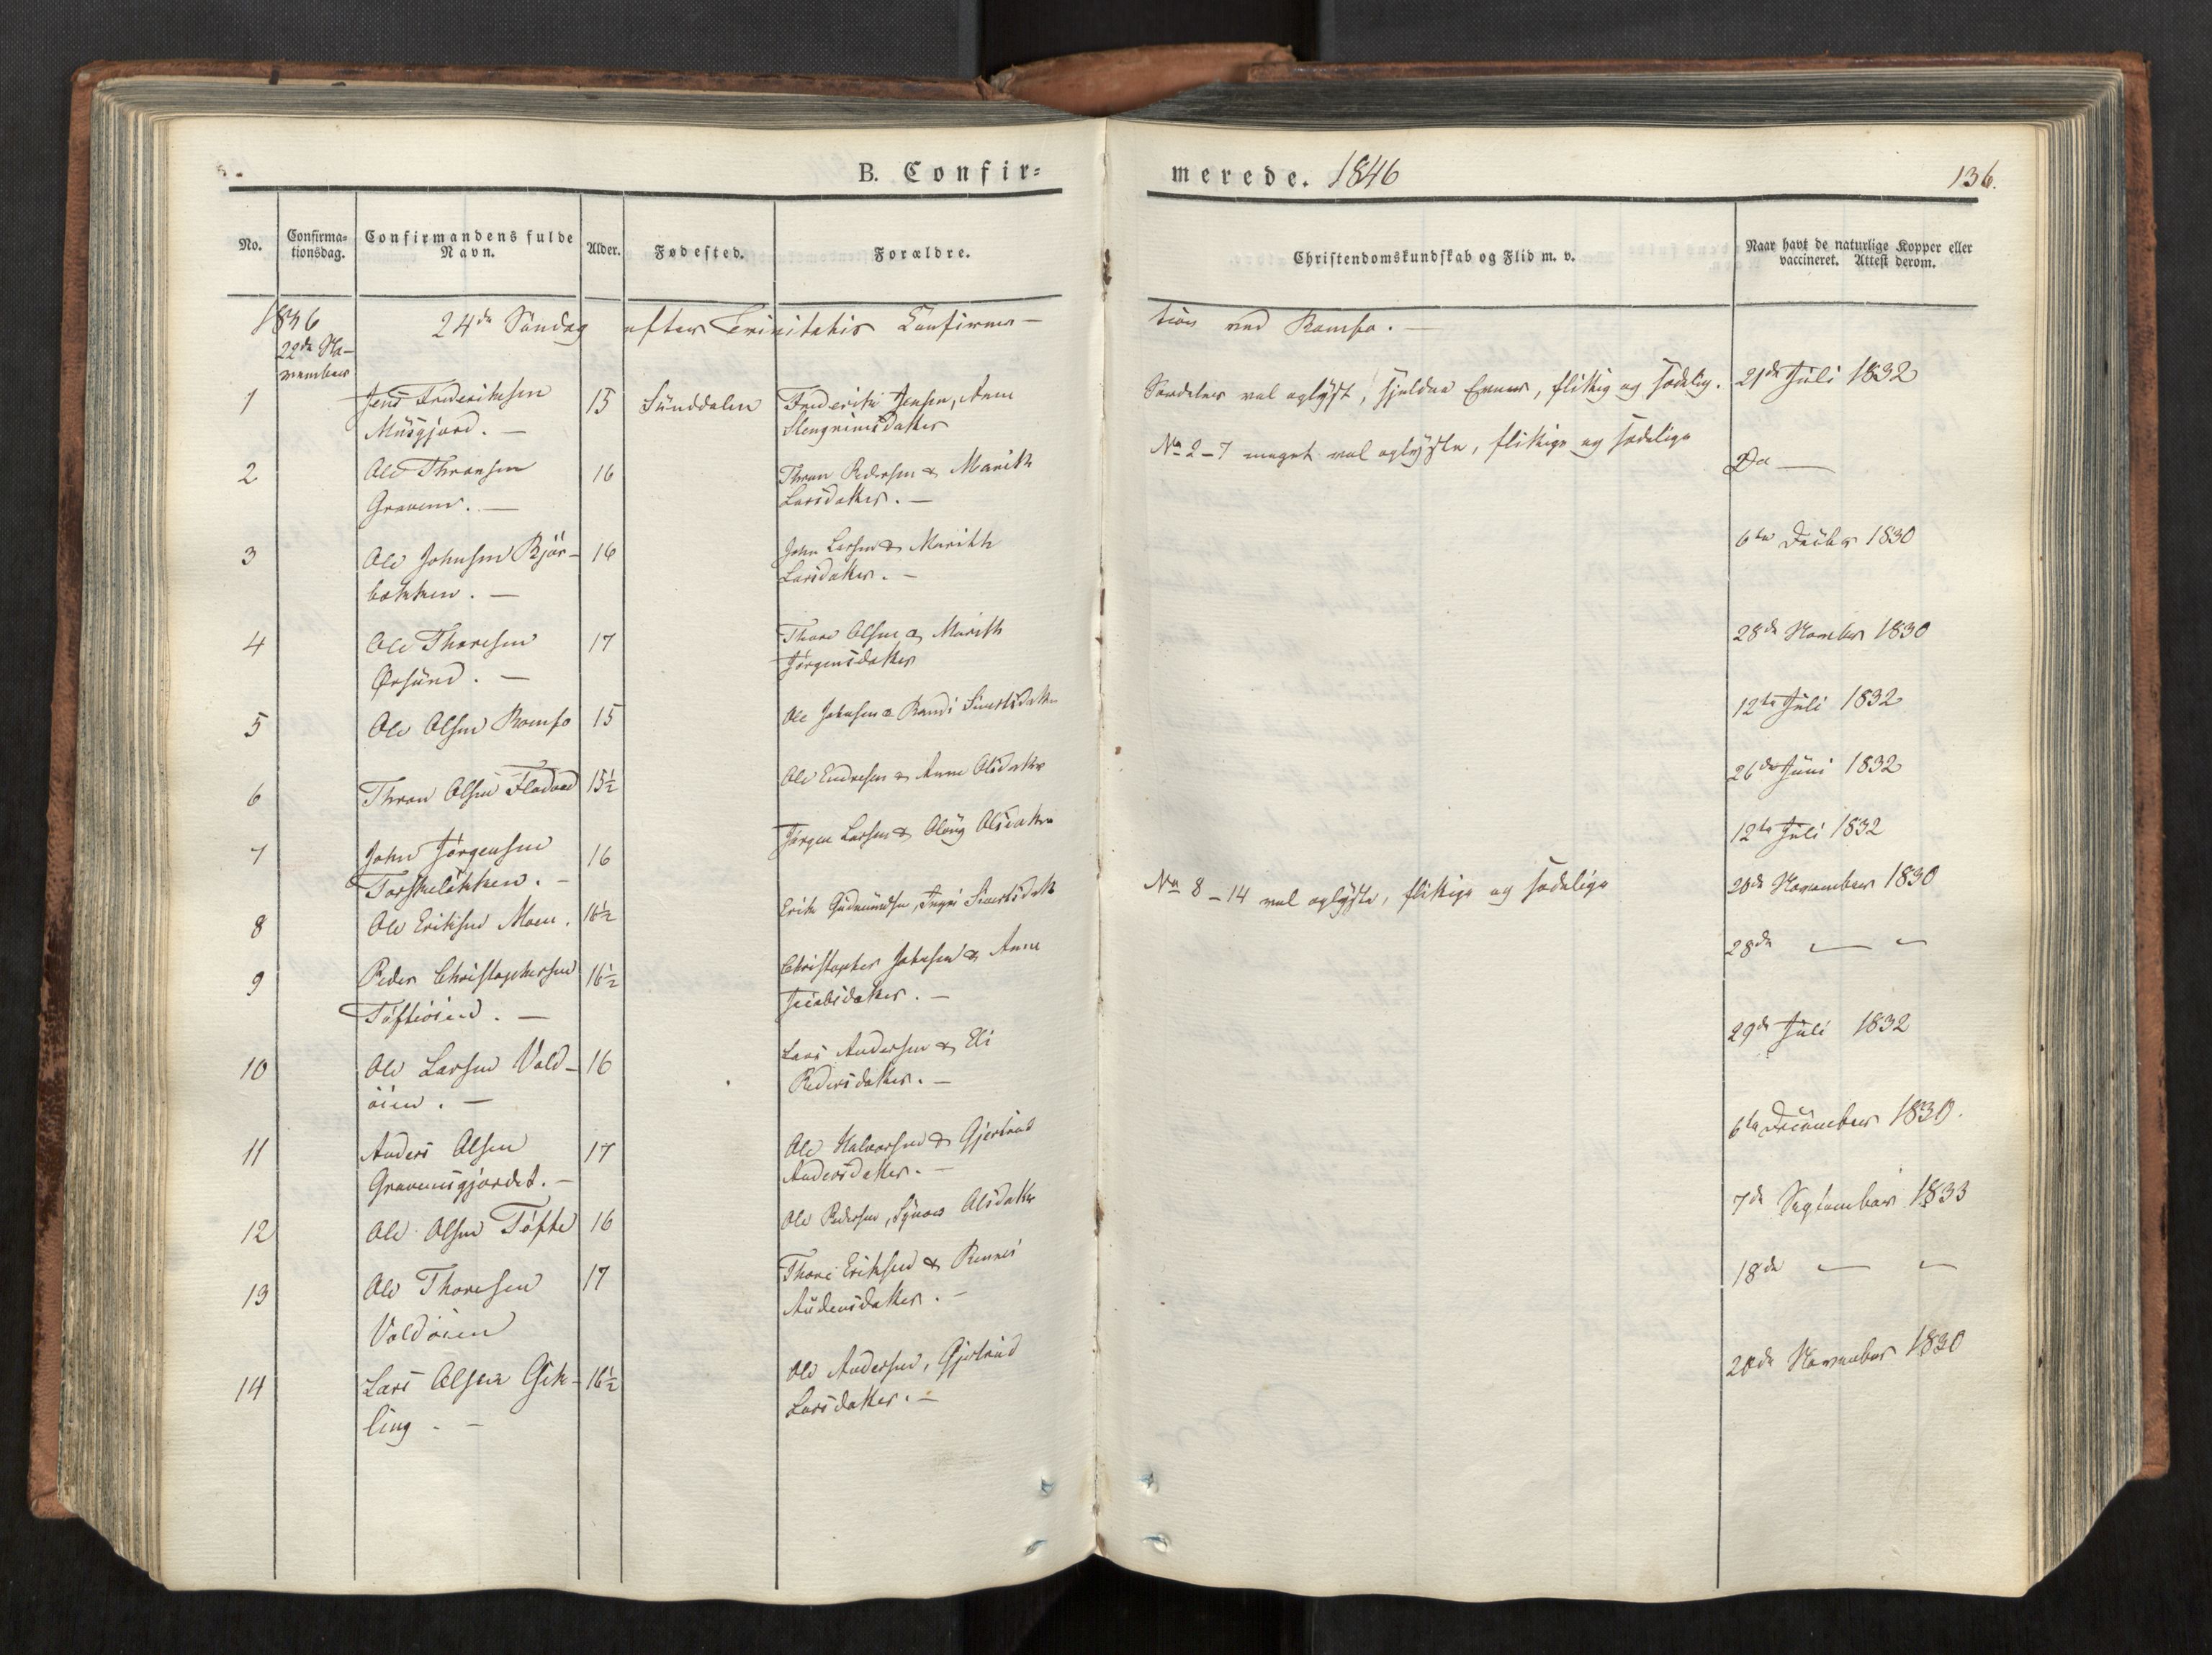 B. Confir=
merede. 1846
136.
No.
Confirma=
tionsdag.
Confirmandens fulde
Navn.
Alder.
Fødested.
Forældre.
Christendomskundskab og Flid m. v.
Naar havt de naturlige Kopper eller
vaccineret. Attest derom.
1846 24de Søndag efter Trinitatis Confirma-
tion ved Romfo.
22de No-
vember
1 Jens Frederiksen 15 Sunddalen Frederik Jensen, Anne
Musgjerd. — Stengrimsdatter
Særdeles vel oplyst, sjeldne Evner, flittig og sædelig. 21de Juli 1832
2 Ole Thronsen 16 Thron Pedersen & Marith
Gravem. — Larsdatter. —
No 2-7 meget vel oplyste, flittige og sædelige Do —
3 Ole Johnsen Bjør- 16 John Larsen & Marith
bækken. — Larsdatter. —
6te Decbr 1830
4 Ole Thoresen 17 Thore Olsen & Marith
Ørsund. — Jørgensdatter
28de November 1830
5 Ole Olsen Romfo 15 Ole Johnsen & Randi Sivertsdatter
12te Juli 1832
6 Thron Olsen Fladvad 15½ Ole Endresen & Anne Olsdatter
26de Juni 1832
7 John Jørgensen 16 Jørgen Larsen & Oloug Olsdatter
Torskeløkken. —
12te Juli 1832
8 Ole Eriksen Moen. 16½ Erik Gudmundsen, Ingri Sivertsdatt
No 8-14 vel oplyste, flittige og sædelige 20de November 1830
9 Peder Christophersen 16½ Christopher Johnsen & Anne
Toftøien. — Jacobsdatter. —
28de — —
10 Ole Larsen Vold- 16 Lars Andersen & Eli
øien. — Pedersdatter. —
29de Juli 1832
11 Anders Olsen 17 Ole Halvorsen & Gjertrud
Gravemsgjordet. — Andersdatter. —
6te December 1830.
12 Ole Olsen Tofte 16 Ole Pedersen, Synove Olsdatter
7de September 1833
13 Ole Thoresen 17 Thore Eriksen &
Voldøien Audensdatter. —
18de — —
14 Lars Olsen Gik- 16½ Ole Andersen, Gjertrud
ling. — Larsdatter. —
28de November 1830